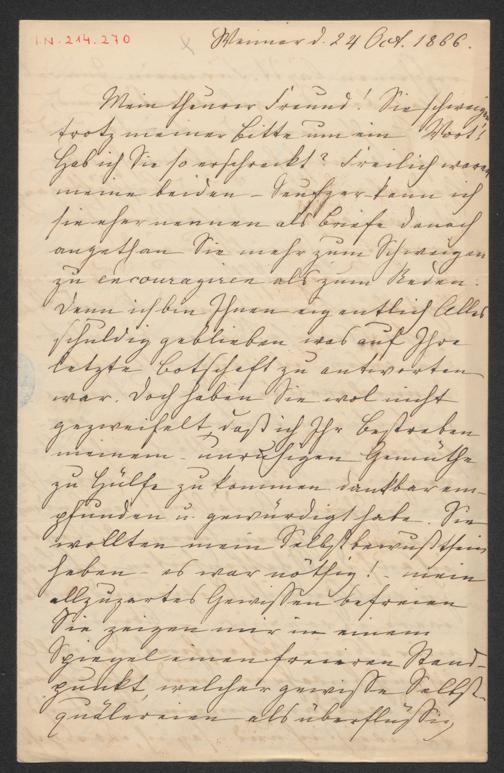 I.N. 214.270
Weimar d. 24 Oct. 1866.
Mein theurer Freund! Sie schweigen
trotz meiner Bitte um ein Wort!
Hab ich Sie so erschreckt? Freilich waren
meine beiden – Seufzer kann ich
sie eher nennen als Briefe danach
angethan Sie mehr zum Schweigen
zu encouragiren als zum Reden.
Denn ich bin Ihnen eigentlich Alles
schuldig geblieben was auf Ihre
letzte Botschaft zu antworten
war. Doch haben Sie wol nicht
gezweifelt, daß ich Ihr Bestreben
meinem – unruhigen Gemüthe
zu Hülfe zu kommen dankbar em-
pfunden u. gewürdigt habe. Sie
wollten mein Selbstbewußtsein
heben – es war nöthig! – mein
allzuzartes Gewissen befreien
Sie zeigen mir in einem
Spiegel einen freieren Stand-
punkt, welcher gewisse Selbst-
quälereien als überflüssig,